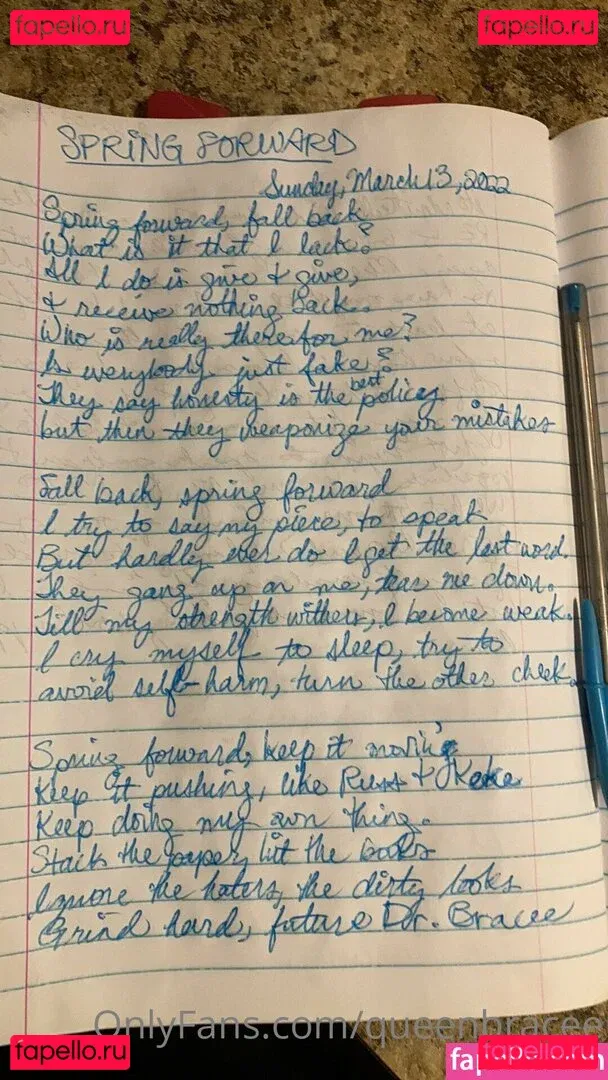 fapello.ru
fapello.ru
SPRING FORWARD
Sunday, March 13, 2022
Spring forward, fall back
What is it that I lack?
All I do is give & give,
& receive nothing back.
Who is really there for me?
Is everybody just fake?
They say honesty is the best policy
but then they weaponize your mistakes
Fall back, spring forward
I try to say my piece, to speak
But hardly ever do I get the last word.
They gang up on me, tear me down.
Till my strength withers, I become weak.
I cry myself to sleep, try to
avoid self-harm, turn the other cheek.
Spring forward, keep it movin'
Keep it pushing, like Russ & Keke
Keep doing my own thing.
Stack the paper, hit the books
Ignore the haters, the dirty looks
Grind hard, future Dr. Bracee
OnlyFans.com/queenbracee
fapello.ru
fapello.ru